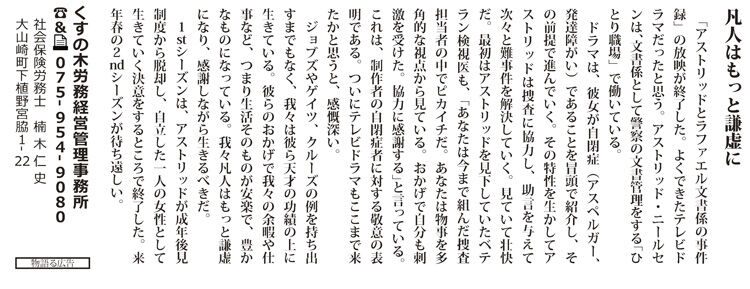 凡人はもっと謙虚に
「アストリッドとラファエル文書係の事件
録」の放映が終了した。よくできたテレビド
ラマだったと思う。アストリッド・ニールセ
ンは、文書係として警察の文書管理をする「ひ
とり職場」で働いている。
ドラマは、彼女が自閉症（アスペルガー、
発達障がい）であることを冒頭で紹介し、そ
の前提で進んでいく。その特性を生かしてア
ストリッドは捜査に協力し、助言を与えて
次々と難事件を解決していく。見ていて壮快
だ。最初はアストリッドを見下していたベテ
ラン検視医も、「あなたは今まで組んだ捜査
担当者の中でピカイチだ。あなたは物事を多
角的な視点から見ている。おかげで自分も刺
激を受けた。協力に感謝する」と言っている。
これは、制作者の自閉症者に対する敬意の表
明である。ついにテレビドラマもここまで来
たかと思うと、感慨深い。
ジョブズやゲイツ、クルーズの例を持ち出
すまでもなく、我々は彼ら天才の功績の上に
生きている。彼らのおかげで我々の余暇や仕
事など、つまり生活そのものが安楽で、豊か
なものになっている。我々凡人はもっと謙虚
になり、感謝しながら生きるべきだ。
1stシーズンは、アストリッドが成年後見
制度から脱却し、自立した一人の女性として
生きていく決意をするところで終了した。来
年春の2ndシーズンが待ち遠しい。
くすの木労務経営管理事務所
☎&📠 075-954-9080
社会保険労務士 楠木仁史
大山崎町下植野宮脇1-22
物語る広告